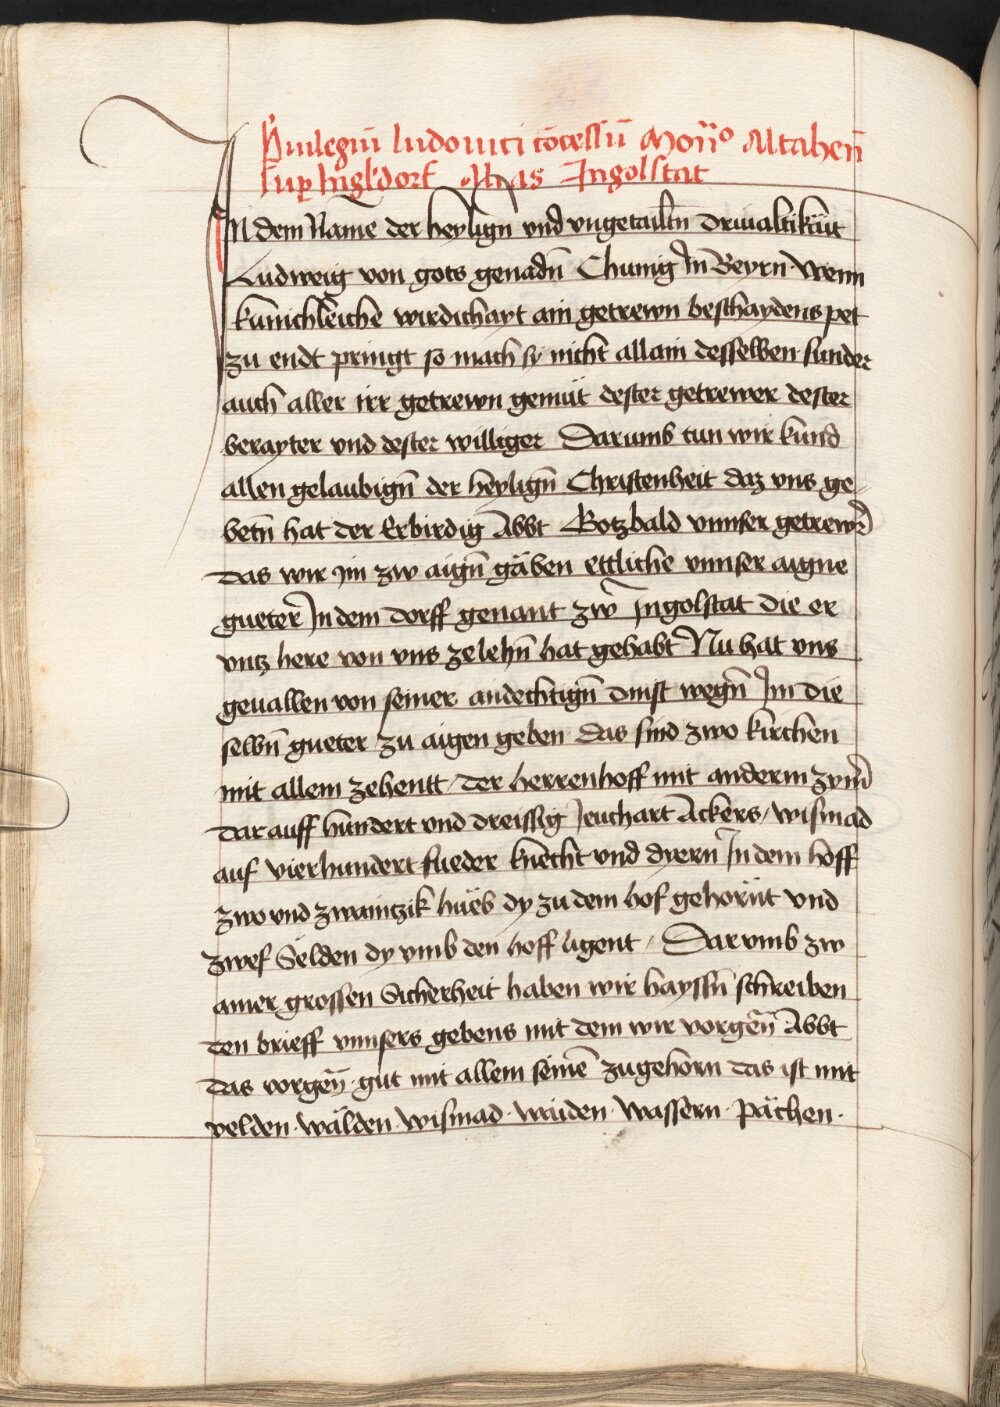 P'uilegiū ludouici cōcessū Mon'io Altaheñ
sup Ingl'dorf alias Ingolstat
IN dem Name der heyligñ vnd vngetailtñ Driualtikäit
Ludweig von gots genadñ Chunig In Beyrñ · Wenn
kunichleiche wirdichayt ain getrewn beschaydens pet
zu endt pringt so mach sy nicht allain desselben sunder
auch aller irr getrewn gemüt dester getrewer dester
berayter vnd dester williger Darumb tun wir kund
allen gelaubigñ der heyligñ Christenheit daz vns ge-
betñ hat der Erbirdig Abbt Gotzbald vnnser getrewr
das wir im zw aigñ gäben ettliche vnnser aigne
gueter In dem dorff genant zw Ingolstat die er
vntz here von vns zelehñ hat gehabt Nu hat vns
geuallen von seiner andechtigñ dinst wegñ Im die
selbñ gueter zu aigen geben das sind zwo kirchen
mit allem zehentt / der herrenhoff mit anderm zymer
dar auff hundert vnd dreissig Jeuchart Ackers / wismad
auf vierhundert fueder knecht vnd dyern In dem hoff
zwo vnd zwaintzik hueb dy zu dem hof gehorñt vnd
zwef Selden dy vmb den hoff ligent / Dar vmb zw
ainer grossen Sicherheit haben wir hayssñ schreiben
den brieff vnnsers gebens mit dem wir vorgeñ Abbt
das vorgeñ · gut mit allem seinē zugehorn das ist mit
velden · wälden · wismad · waiden · wassern · pächen ·